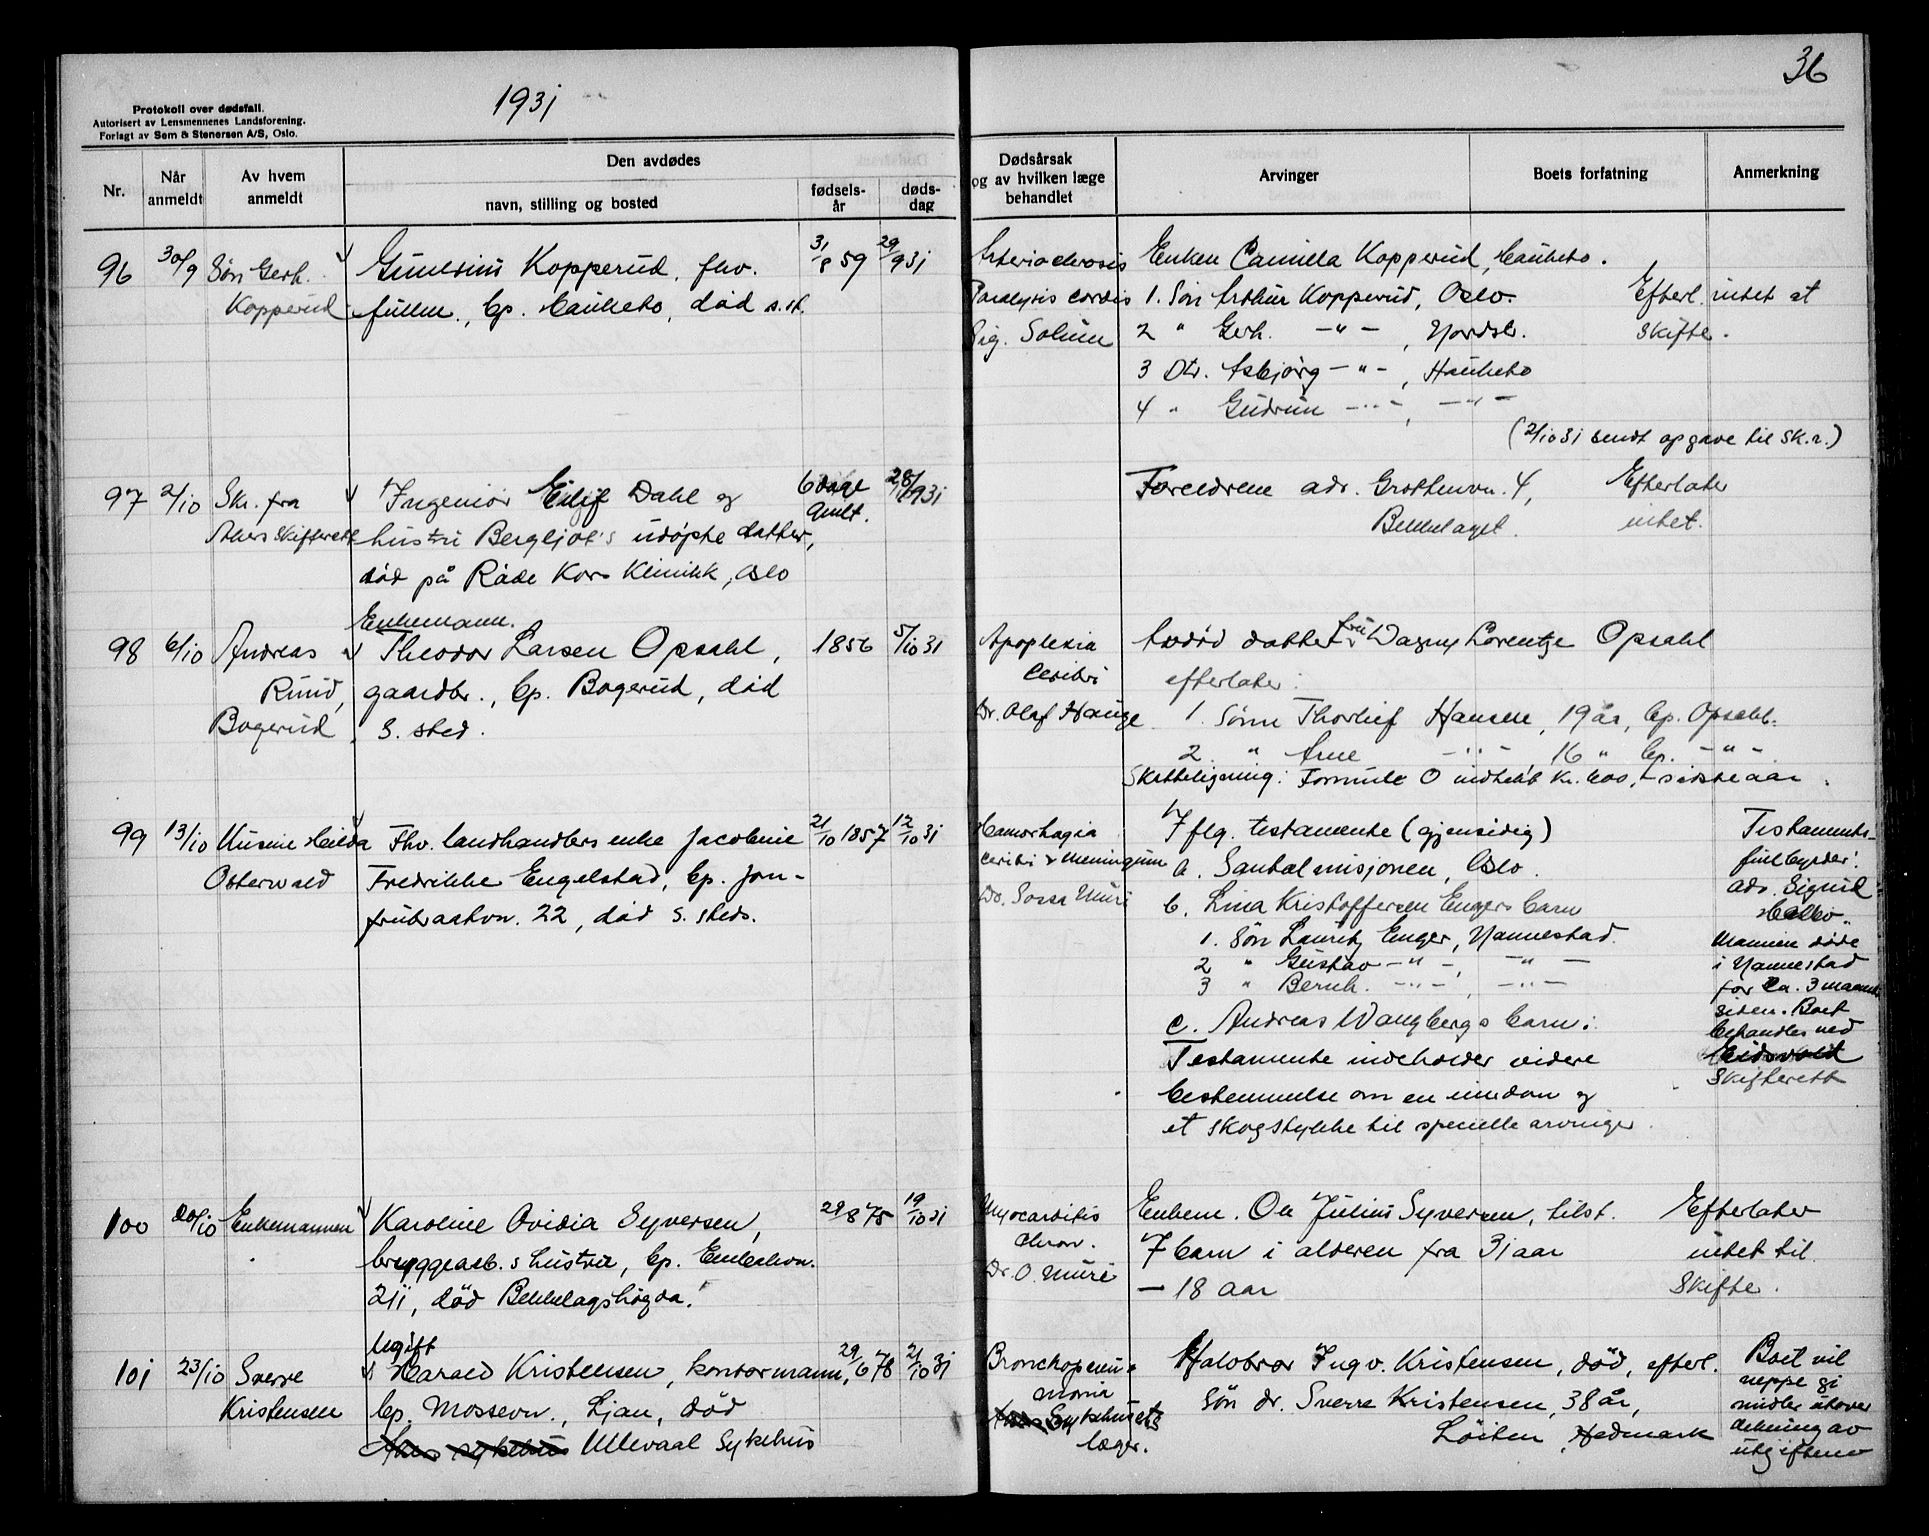 1931
36
Protokoll over dødsfall.
Autorisert av Lensmennenes Landsforening.
Forlagt av Sem & Stenersen A/S, Oslo.
Nr.
Når anmeldt
Av hvem anmeldt
Den avdødes
navn, stilling og bosted
fødsels-år
døds-dag
Dødsårsak og av hvilken læge behandlet
Arvinger
Boets forfatning
Anmerkning
96 30/9 Søn Gerh. Kopperud, fhv. 31/8 59 29/9 31
Kopperud
bp. Hauketo, død s. st.
Arteriosclerosis
Paralysis cordis
Sig. Solum
Enken Camilla Kopperud, Hauketo.
1. Søn Arthur Kopperud, Oslo.
2 " Gerh. — " — , Nordstr.
3 Dtr. Asbjørg — " — , Hauketo
4 " Gudrun — " — , — " —
Efterl. intet at
skifte.
(2/10 31 sendt opgave til sk.r.)
97 2/10 Skr. fra
Akers Skifterett
Ingeniør Eilif Dahl og
hustru Bergljot's udøpte datter,
død på Røde Kors Klinikk, Oslo
6 dage
gmlt.
28/9 31
Foreldrene adr. Grottenvn. 4,
Bekkelaget.
Efterlater
intet.
98 6/10 Andreas
Ruud,
Bogerud
Enkemann.
Theodor Larsen Opsahl,
gaardbr., bp. Bogerud, død
s. sted.
1856 5/10 31
Apoplexia
cerebri
Dr. Olaf Hauge
Avdød datter fru Dagny Lorentze Opsahl
efterlater:
1. Sønn Thorleif Hansen, 19 år, bp. Opsahl.
2. " Arne — " — 16 " bp. — " —
Skatteligning: Formue 0 indtekt kr. 600,- sidste aar.
99 13/10 Kusine Hilda
Osterwald
Fhv. landhandlers enke Jacobine
Fredrikke Engelstad, bp. Jom-
frubraatvn. 22, død s. steds.
21/10 1857 12/10 31
Hæmorhagia
cerebri & meningium
Dr. Sossa Muri
Iflg. testamente (gjensidig)
a. Santalmisjonen, Oslo.
b. Lina Kristoffersen Engers barn
1. Søn Lauritz Enger, Nannestad.
2 " Gustav — " — , — " —
3 " Bernh. — " — , — " —
c. Andreas Wangbergs barn:
Testamente indeholder videre
bestemmelse om en eiendom og
et skogstykke til spesielle arvinger.
Testaments-
fuldbyrder:
adv. Sigurd
Mannen døde
i Nannestad
for ca. 3 maaneder
siden. Boet
behandles ved
Eidsvold
Skifterett
100 20/10 Enkemannen
Karoline Ovidia Syversen,
bryggearb.s hustru, bp. Enebakvn.
211, død Bekkelagshøgda.
29/8 75 19/10 31
Myocarditis
chron.
Dr. O. Muri
Enkem. Ole Julius Syversen, tilst.
7 barn i alderen fra 31 aar
— 18 aar
Efterlater
intet til
Skifte.
101 23/10 Sverre
Kristensen
Ugift
Harald Kristensen, kontormann,
bp. Mossevn., Ljan, død
Akers sykehus Ullevaal Sykehus
29/6 78 21/10 31
Bronchopneu-
monia
Akers Sykehusets
læger.
Halvbror Ingv. Kristensen, død, efterl.
søn dr. Sverre Kristensen, 38 år,
Løiten, Hedmark
Boet vil
neppe gi
midler utover
dekning av
utgiftene